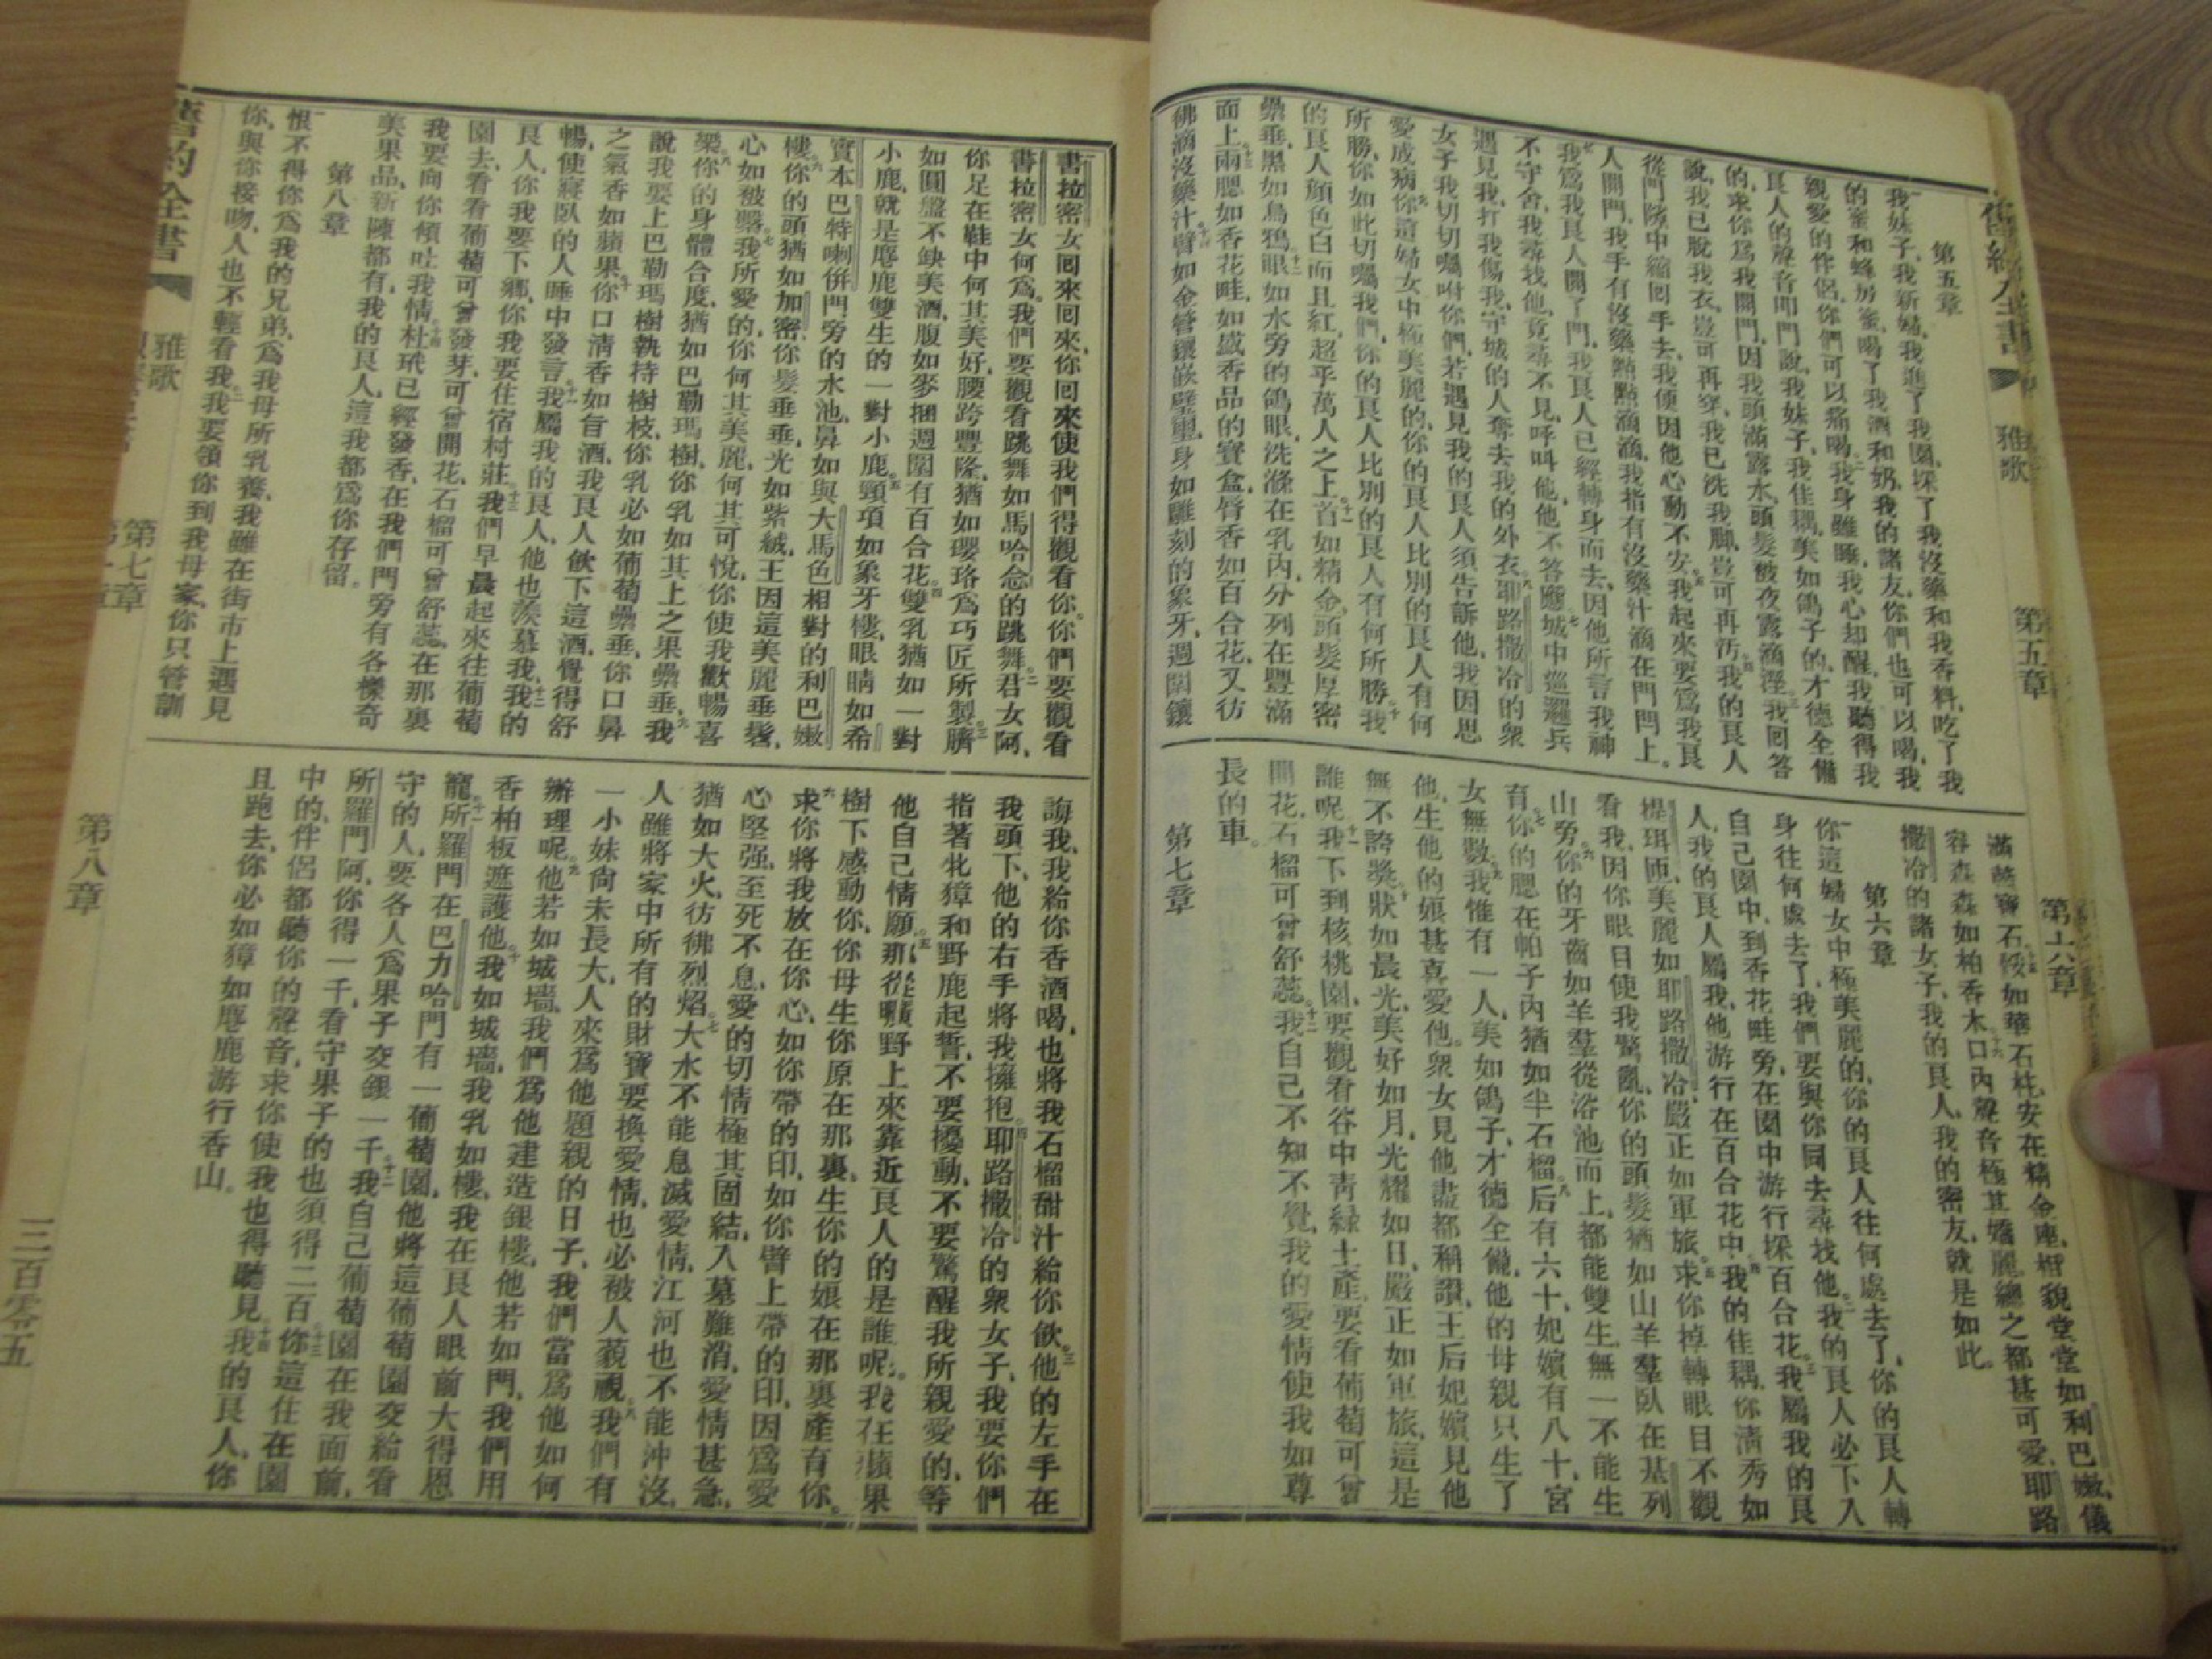 第五章
我妹子我新婦我進了我園採了我沒藥和我香料吃了我
的蜜和蜂房蜜喝了我酒和奶我的諸友你們也可以喝我
親愛的伴侶你們可以痛喝我身雖睡我心却醒我聽得我
良人的聲音叩門說我妹子我佳耦美如鴿子的才德全備
的求你爲我開門因我頭滿露水頭髮被夜露滴溼我回答
說我已脫我衣豈可再穿我已洗我脚豈可再汚我的良人
從門防中縮回手去我便因他心動不安我起來要爲我良
人開門我手有沒藥點點滴滴我指有沒藥汁滴在門閂上。
我爲我良人開了門我良人已經轉身而去因他所言我神
不守舍我尋找他竟尋不見呼叫他他不答應城中巡邏兵
遇見我打我傷我守城的人奪去我的外衣耶路撒冷的衆
女子我切切囑咐你們若遇見我的良人須告訴他我因思
愛成病你這婦女中極美麗的你的良人比別的良人有何
所勝你如此切囑我們你的良人比別的良人有何所勝我
的良人顏色白而且紅超乎萬人之上首如精金頭髮厚密
纍垂黑如烏鴉眼如水旁的鴿眼洗滌在乳內分列在豐滿
面上兩腮如香花畦如盛香品的寶盒脣香如百合花又彷
彿滴沒藥汁臂如金管鑲嵌璧璽身如雕刻的象牙週圍鑲
滿藍寶石骽如華石柱安在精金座相貌堂堂如利巴嫩儀
容森森如柏香木口內聲音極其嬌麗總之都甚可愛耶路
撒冷的諸女子我的良人我的密友就是如此。
第六章
你這婦女中極美麗的你的良人往何處去了你的良人轉
身往何處去了我們要與你同去尋找他我的良人必下入
自己園中到香花畦旁在園中游行採百合花我屬我的良
人我的良人屬我他游行在百合花中我的佳耦你清秀如
提珥匝美麗如耶路撒冷嚴正如軍旅求你掉轉眼目不觀
看我因你眼目使我驚亂你的頭髮猶如山羊羣臥在基列
山旁你的牙齒如羊羣從浴池而上都能雙生無一不能生
育你的腮在帕子內猶如半石榴后有六十妃嬪有八十宮
女無數我惟有一人美如鴿子才德全備他的母親只生了
他生他的娘甚喜愛他。衆女見他盡都稱讚王后妃嬪見他
無不誇獎狀如晨光美好如月光耀如日嚴正如軍旅這是
誰呢我下到核桃園要觀看谷中青綠土產要看葡萄可曾
開花石榴可曾舒蕊我自己不知不覺我的愛情使我如尊
長的車。
第七章
書拉密女回來回來你回來使我們得觀看你。你們要觀看
書拉密女何爲。我們要觀看跳舞如馬哈念的跳舞君女阿
你足在鞋中何其美好腰跨豐隆猶如瓔珞爲巧匠所製臍
如圓盤不缺美酒腹如麥捆週圍有百合花雙乳猶如一對
小鹿就是麀鹿雙生的一對小鹿頸項如象牙樓眼睛如希
實本巴特喇併門旁的水池鼻如與大馬色相對的利巴嫩
樓你的頭猶如加密你髮垂垂光如紫絨王因這美麗垂髫
心如被繫我所愛的你何其美麗何其可悅你使我歡暢喜
樂你的身體合度猶如巴勒瑪樹你乳如其上之果纍垂我
說我要上巴勒瑪樹執持樹枝你乳必如葡萄纍垂你口鼻
之氣香如蘋果你口清香如旨酒我良人飲下這酒覺得舒
暢使寢臥的人睡中發言我屬我的良人他也羨慕我我的
良人你我要下鄉你我要住宿村莊我們早晨起來往葡萄
園去看看葡萄可曾發芽可曾開花石榴可曾舒蕊在那裏
我要向你傾吐我情杜玳已經發香在我們門旁有各樣奇
美果品新陳都有我的良人這我都爲你存留。
第八章
恨不得你爲我的兄弟爲我母所乳養我雖在街市上遇見
你與你接吻人也不輕看我我要領你到我母家你只管訓
誨我我給你香酒喝也將我石榴甜汁給你飲他的左手在
我頭下他的右手將我擁抱。耶路撒冷的衆女子我要你們
指著牝獐和野鹿起誓不要擾動不要驚醒我所親愛的等
他自己情願那從曠野上來靠近良人的是誰呢。我在蘋果
樹下感動你你母生你原在那裏生你的娘在那裏產育你。
求你將我放在你心如你帶的印如你臂上帶的印因爲愛
心堅强至死不息愛的切情極其固結入墓難消愛情甚急
猶如大火彷彿烈焰大水不能息滅愛情江河也不能沖沒
人雖將家中所有的財寶要換愛情也必被人藐視我們有
一小妹尙未長大人來爲他題親的日子我們當爲他如何
辦理呢他若如城墻我們爲他建造銀樓他若如門我們用
香柏板遮護他我如城墻我乳如樓我在良人眼前大得恩
寵所羅門在巴力哈門有一葡萄園他將這葡萄園交給看
守的人要各人爲果子交銀一千我自己葡萄園在我面前
所羅門阿你得一千看守果子的也須得二百你這住在園
中的伴侶都聽你的聲音求你使我也得聽見我的良人你
且跑去你必如獐如麀鹿游行香山。
雅歌
第五章
第六章
雅歌
第七章
第八章
三百零五